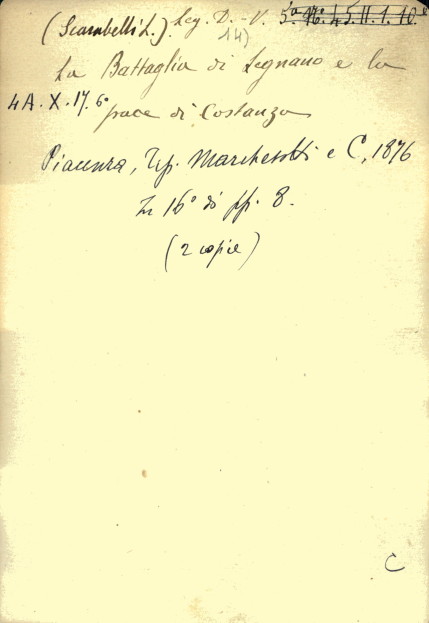 (Scarabelli L.). Leg. D.-V. 5ª Nº. 45. II. 1. 10.e
14)
La Battaglia di Legnano e la
4 A. X. 17. 6º
pace di Costanza
Piacenza, Tip. Marchesotti e C, 1876
In 16º di pp. 8.
(2 copie)
C